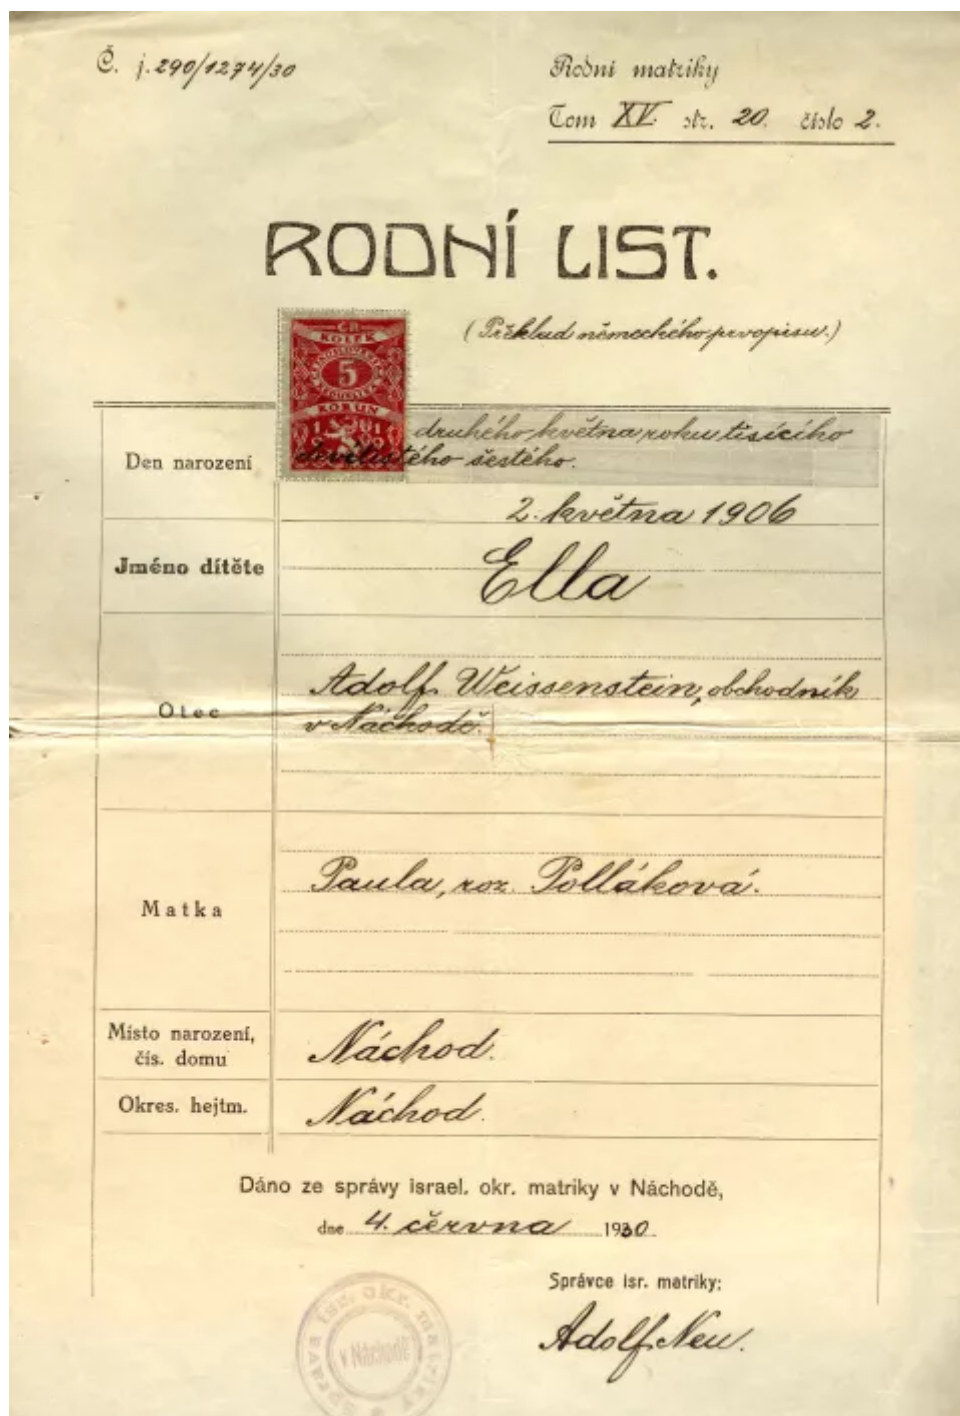 Č. j. 290/1274/30
Rodní matriky
Tom XV. str. 20. číslo 2.
RODNÍ LIST.
(Překlad německého prvopisu.)
ČR
KOLEK
5
KORUN
1919
Den narození
druhého května roku tisícího
devítistého šestého.
2. května 1906
Jméno dítěte
Ella
Otec
Adolf Weissenstein, obchodník
v Náchodě.
Matka
Paula, roz. Polláková.
Místo narození,
čís. domu
Náchod.
Okres. hejtm.
Náchod.
Dáno ze správy israel. okr. matriky v Náchodě,
dne 4. června 1930.
Správce isr. matriky:
Adolf Neu.
Správa isr. okr. matriky
v Náchodě